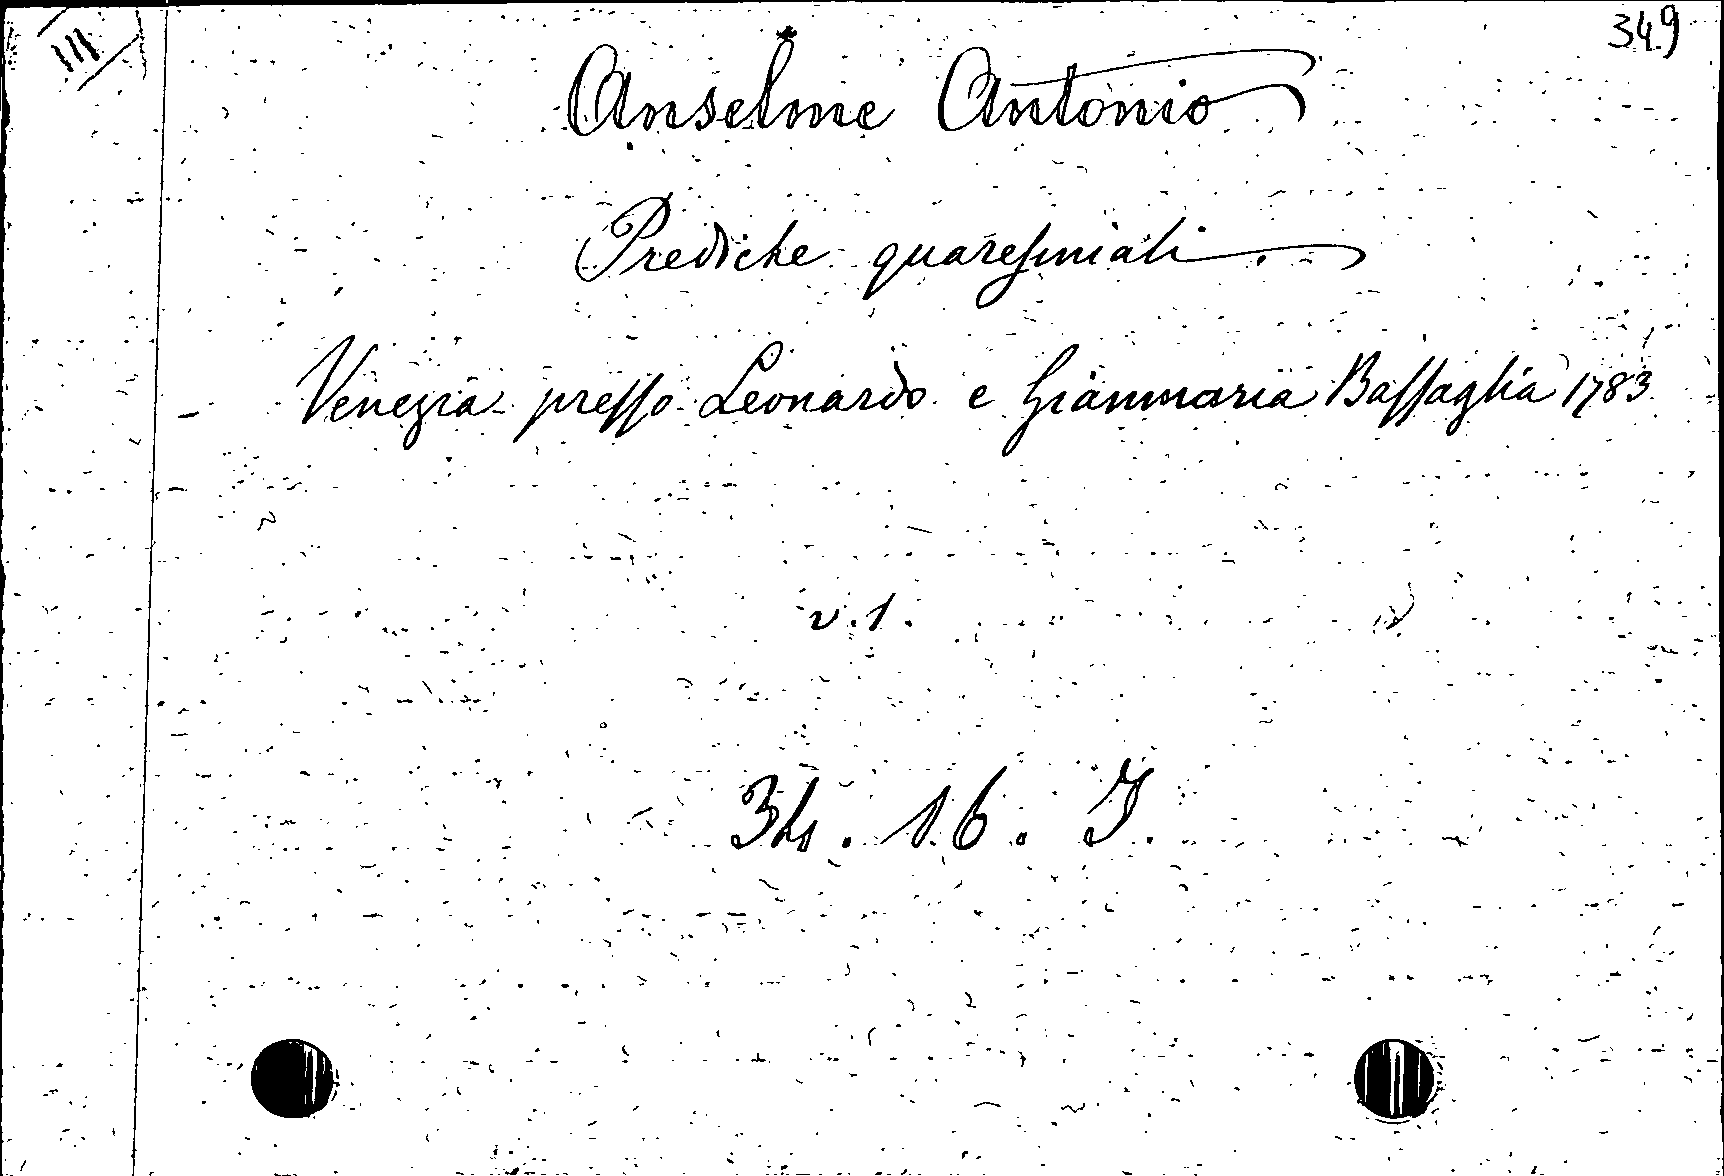 III
349
Anselme Antonio
Prediche quaresimali
Venezia presso Leonardo e Gianmaria Bassaglia 1783
v. 1.
34. 16. I.